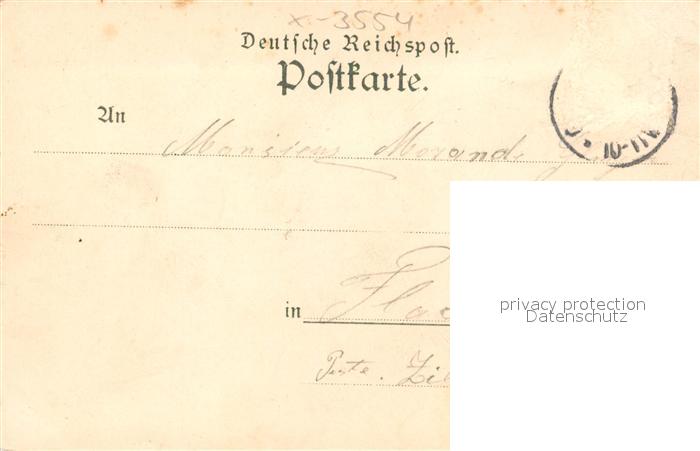 x-3554
Deutsche Reichspost.
Postkarte.
An
Monsieur Morand
10-11V
in Flo
Poste. Zi
privacy protection
Datenschutz